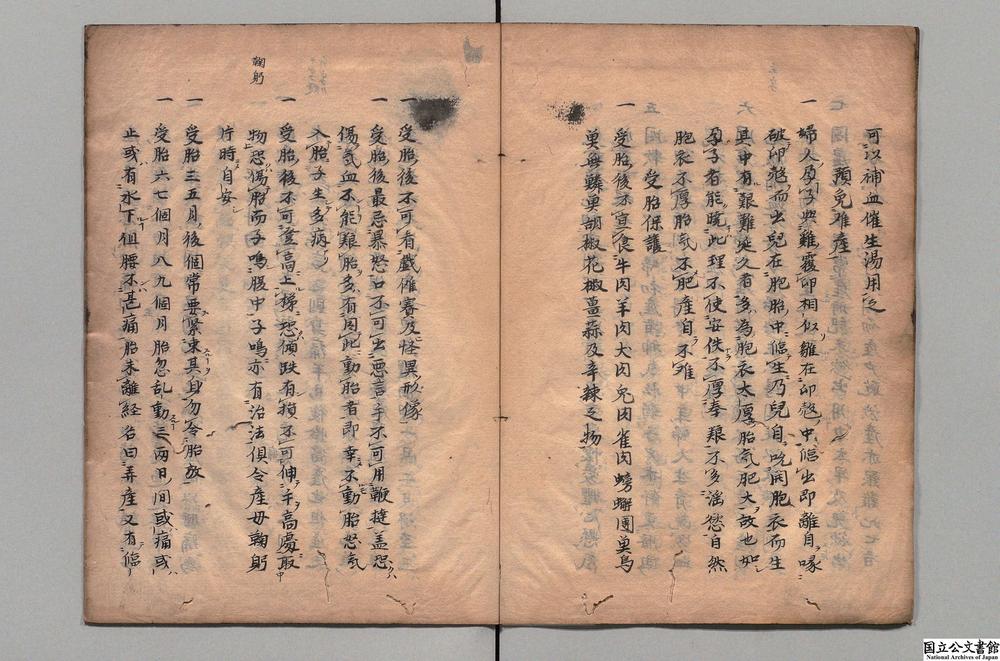 可以補血催生湯用之
預免難産
一 婦人孕子與雞覆卵相似雛在卵殼中臨出即雛自喙
破卵殼而出兒在胞胎中臨生乃兒自咬開胞衣而生
其中有艱難延久者多為胞衣太厚胎气肥大故也如
孕子者能曉此理不使安佚不厚奉養不多淫慾自然
胞衣不厚胎气不肥産自不难
受胎保護
一 受胎後不宜食牛肉羊肉犬肉兔肉雀肉螃蠏團魚烏
魚無鱗魚胡椒花椒薑蒜及辛辣之物
一 受胎後不可看戲傩賽及怪異形像
一 受胎後最忌暴怒口不可出惡言手不可用鞭撻盖恐
傷气血不能養胎多有因此動胎者即幸不動胎怒气
入胎子生多病
一 受胎後不可登高上梯恐傾跌有損不可伸手高處取
物恐傷胎而子鳴腹中子鳴亦有治法俱令産母鞠躬
片時自安
一 受胎三五月後個常要緊束其身勿令胎放
一 受胎六七個月八九個月胎忽乱動三両日間或痛或
止或有水下但腰不甚痛胎未離経名曰弄産又有臨
鞠躬
国立公文書館
National Archives of Japan